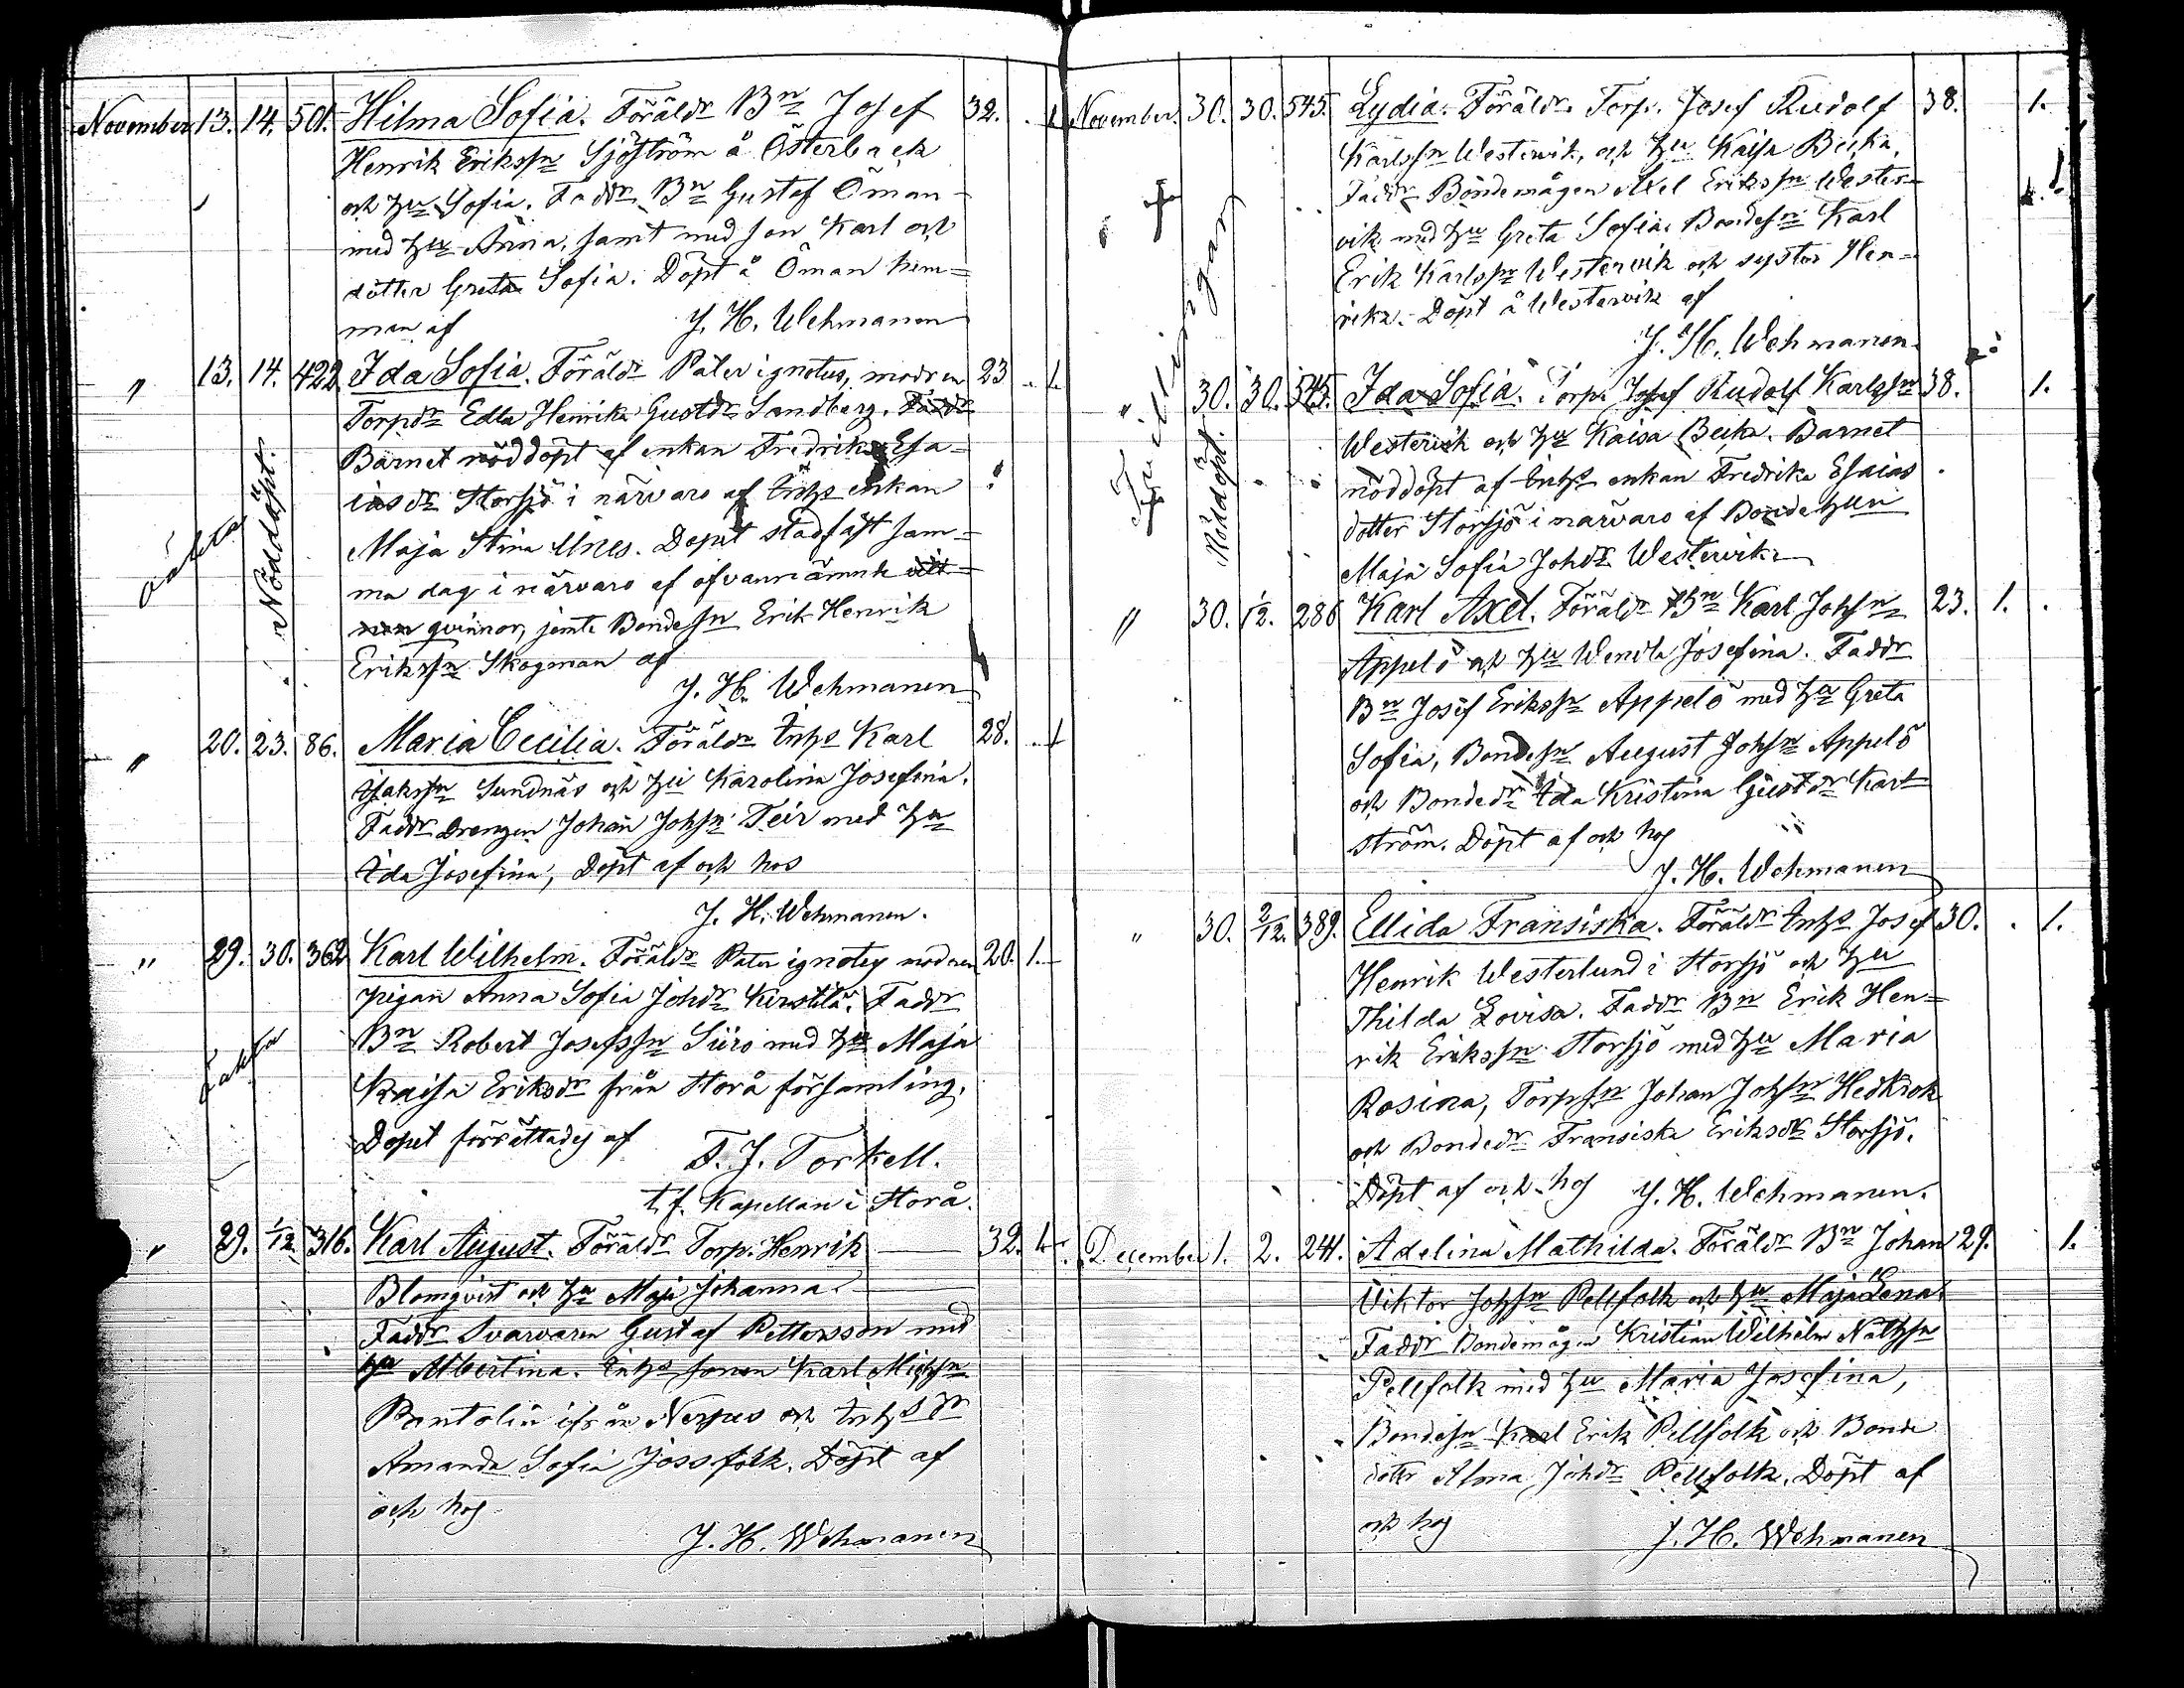 November 13. 14. 501. Hilma Sofia. Föräldr Bn Josef 32. 1.
Henrik Erikssn Sjöström å Österback
och hu Sofia. Faddr Bn Gustaf Öman
med hu Anna, samt med son Karl och
dotter Greta Sofia. Döpt å Öman hem=
man af J. H. Wehmanen
" 13. 14. 422. Ida Sofia. Föräldr Pater ignotus, modren 23 1.
Torpdr Edla Henrika Gustdr Sandberg. Faddr
Barnet nöddöpt af enkan Fredrika Esa=
iasdr Storsjö i närvaro af Inhs enkan
Maja Stina Unes. Dopet stadfäst sam=
ma dag i närvaro af ofvannämnde
qvinnor, jemte Bondesn Erik Henrik
Erikssn Skogman af
J. H. Wehmanen
oäkta
Nöddöpt.
" 20. 23. 86. Maria Cecilia. Föräldr Inhs Karl 28. 1
Isakssn Sundnäs och hu Karolina Josefina.
Faddr Drengen Johan Johsn Teir med hu
Ida Josefina, Döpt af och hos
J. H. Wehmanen.
" 29. 30. 362 Karl Wilhelm. Föräldr Pater ignotus modren 20. 1.
pigan Anna Sofia Johdr Kirstilä. Faddr
Bn Robert Josefssn Siiro med hu Maja
Kaisa Eriksdr från Storå församling.
Dopet förrättades af
F. J. Torkell.
t. f. Kapellan i Storå.
oäkta
" 29. 1/12 316. Karl August. Föräldr Torp. Henrik 32. 1.
Blomqvist och hu Maja Johanna.
Faddr Svarvaren Gustaf Pettersson med
hu Albertina. Inhs sonen Karl Michsn
Rantolin ifrån Nerpes och Inhs dr
Amanda Sofia Jossfolk. Döpt af
och hos
J. H. Wehmanen
November. 30. 30. 545. Lydia. Föräldr. Torp. Josef Rudolf 38. 1.
Karlssn Westervik, och hu Kaisa Beeka.
Faddr Bondemågen Axel Erikssn Wester=
vik med hu Greta Sofia. Bondesn Karl
Erik Karlssn Westervik och syster Hen=
rika. Döpt å Westervik af
J. H. Wehmanen.
Tvillingar
" 30. 30. 545. Ida Sofia. Torp. Josef Rudolf Karlssn 38. 1.
Westervik och hu Kaisa Beeka. Barnet
nöddöpt af Inhs enkan Fredrika Esaias
dotter Storsjö i närvaro af Bondehun
Maja Sofia Johdr Westervik
Nöddöpt.
" 30. 1/12. 286 Karl Axel. Föräldr Bn Karl Johsn 23. 1.
Appelö och hu Wendla Josefina. Faddr
Bn Josef Erikssn Appelö med hu Greta
Sofia, Bondesn August Johsn Appelö
och Bondedr Ida Kristina Gustdr Karl
ström. Döpt af och hos
J. H. Wehmanen
" 30. 2/12. 389. Ellida Fransiska. Föräldr Inhs Josef 30. 1.
Henrik Westerlund i Storsjö och hu
Thilda Lovisa. Faddr Bn Erik Hen=
rik Erikssn Storsjö med hu Maria
Rosina, Torpsn Johan Johsn Hedkrok
och Bondedr Fransiska Eriksdr Storsjö.
Döpt af och hos J. H. Wehmanen.
December 1. 2. 241. Adelina Mathilda. Föräldr Bn Johan 29. 1.
Viktor Johsn Pellfolk och hu Maja Lena.
Faddr Bondemågen Kristian Wilhelm Mathsn
Pellfolk med hu Maria Josefina,
Bondesn Karl Erik Pellfolk och Bonde
dotter Alma Johdr Pellfolk. Döpt af
och hos J. H. Wehmanen